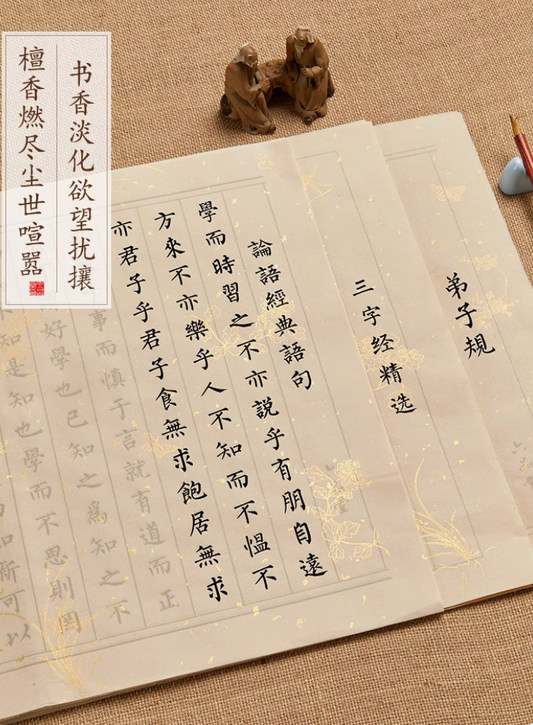 书香淡化欲望扰攘
檀香燃尽尘世喧嚣
弟子規
三字经精选
論語經典語句
學而時習之不亦説乎有朋自遠
方來不亦樂乎人不知而不愠不
亦君子乎君子食無求飽居無求
事而慎于言就有道而正
好學也已知之爲知之不
知是知也學而不思則罔
知新可以